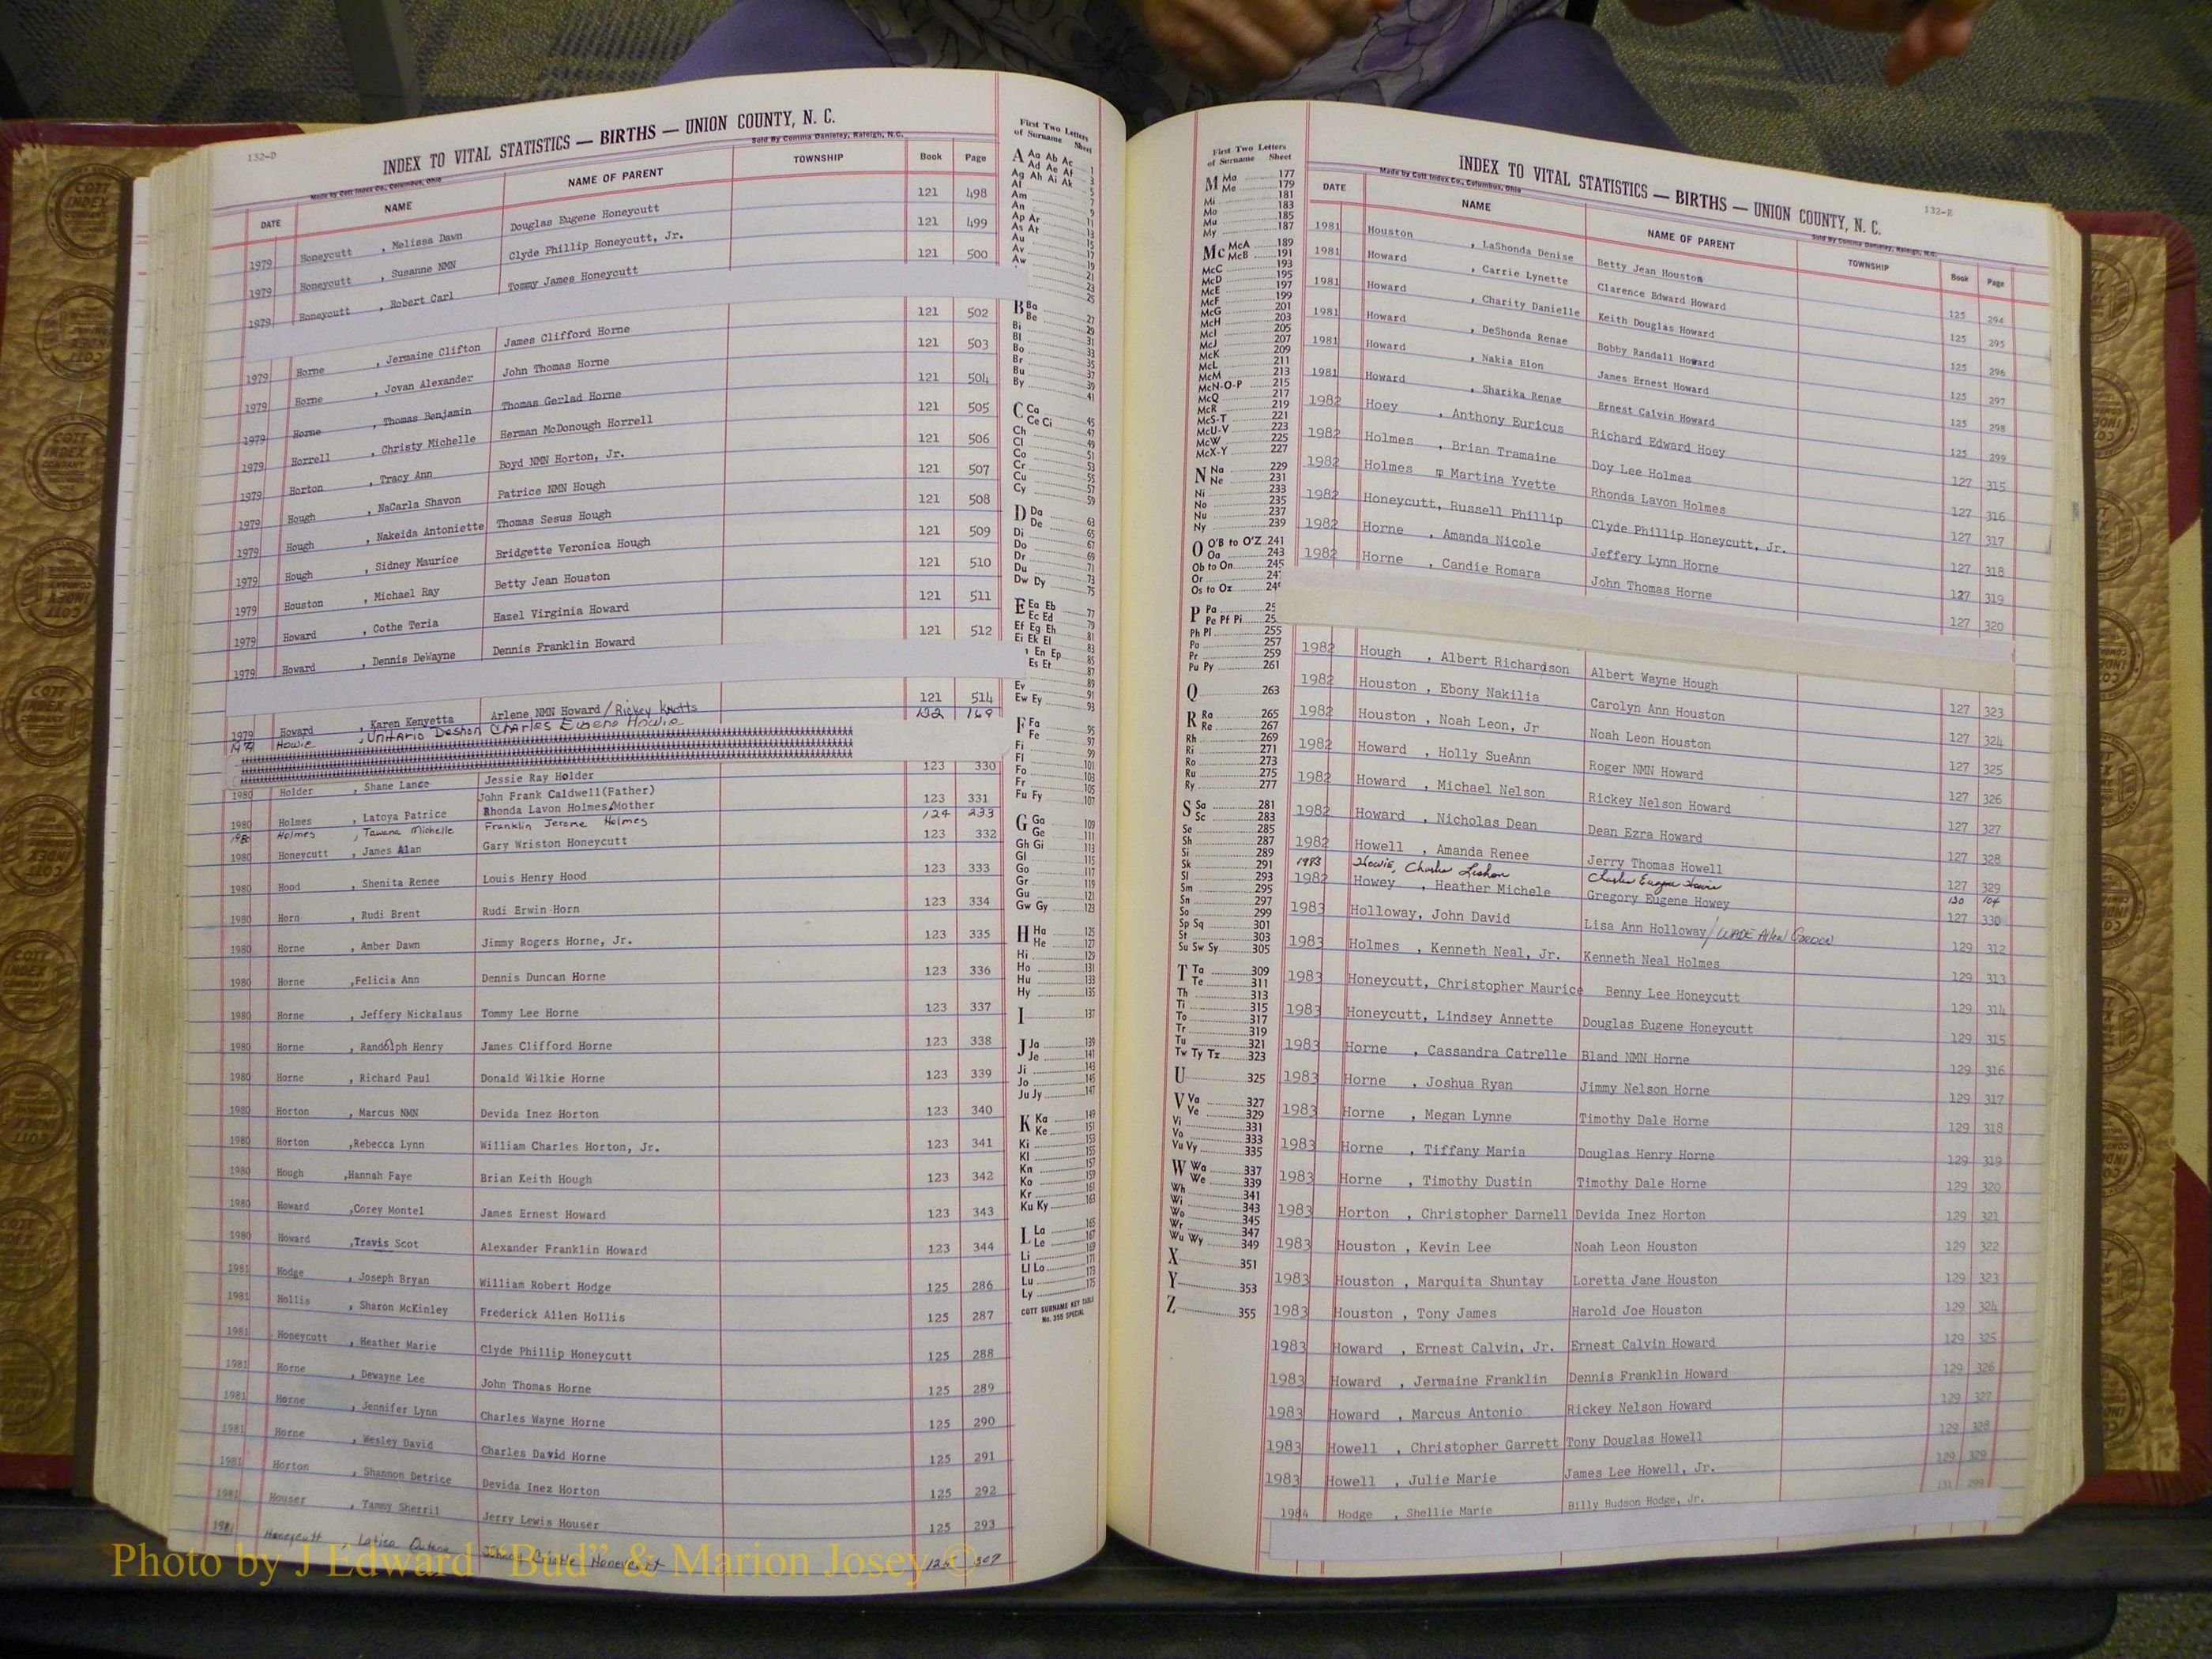 132-D
INDEX TO VITAL STATISTICS — BIRTHS — UNION COUNTY, N. C.
Made by Cott Index Co., Columbus, Ohio
Sold By Comma Danieley, Raleigh, N.C.
DATE NAME NAME OF PARENT TOWNSHIP Book Page
1979 Honeycutt , Melissa Dawn Douglas Eugene Honeycutt 121 498
1979 Honeycutt , Susanne NMN Clyde Phillip Honeycutt, Jr. 121 499
1979 Honeycutt , Robert Carl Tommy James Honeycutt 121 500
1979 Horne , Jermaine Clifton James Clifford Horne 121 502
1979 Horne , Jovan Alexander John Thomas Horne 121 503
1979 Horne , Thomas Benjamin Thomas Gerlad Horne 121 504
1979 Horrell , Christy Michelle Herman McDonough Horrell 121 505
1979 Horton , Tracy Ann Boyd NMN Horton, Jr. 121 506
1979 Hough , NaCarla Shavon Patrice NMN Hough 121 507
1979 Hough , Nakeida Antoniette Thomas Sesus Hough 121 508
1979 Hough , Sidney Maurice Bridgette Veronica Hough 121 509
1979 Houston , Michael Ray Betty Jean Houston 121 510
1979 Howard , Cothe Teria Hazel Virginia Howard 121 511
1979 Howard , Dennis DeWayne Dennis Franklin Howard 121 512
1979 Howard , Karen Kenyetta Arlene NMN Howard / Rickey Knotts 121 514
1979 Howie , Unitario Deshon Charles Eugene Howie 132 169
1980 Holder , Shane Lance Jessie Ray Holder 123 330
John Frank Caldwell(Father)
1980 Holmes , Latoya Patrice Rhonda Lavon Holmes,Mother 123 331
1980 Holmes , Tawana Michelle Franklin Jerome Holmes 124 233
1980 Honeycutt , James Alan Gary Wriston Honeycutt 123 332
1980 Hood , Shenita Renee Louis Henry Hood 123 333
1980 Horn , Rudi Brent Rudi Erwin Horn 123 334
1980 Horne , Amber Dawn Jimmy Rogers Horne, Jr. 123 335
1980 Horne ,Felicia Ann Dennis Duncan Horne 123 336
1980 Horne , Jeffery Nickalaus Tommy Lee Horne 123 337
1980 Horne , Randolph Henry James Clifford Horne 123 338
1980 Horne , Richard Paul Donald Wilkie Horne 123 339
1980 Horton , Marcus NMN Devida Inez Horton 123 340
1980 Horton ,Rebecca Lynn William Charles Horton, Jr. 123 341
1980 Hough ,Hannah Faye Brian Keith Hough 123 342
1980 Howard ,Corey Montel James Ernest Howard 123 343
1980 Howard ,Travis Scot Alexander Franklin Howard 123 344
1981 Hodge , Joseph Bryan William Robert Hodge 125 286
1981 Hollis , Sharon McKinley Frederick Allen Hollis 125 287
1981 Honeycutt , Heather Marie Clyde Phillip Honeycutt 125 288
1981 Horne , Dewayne Lee John Thomas Horne 125 289
1981 Horne , Jennifer Lynn Charles Wayne Horne 125 290
1981 Horne , Wesley David Charles David Horne 125 291
1981 Horton , Shannon Detrice Devida Inez Horton 125 292
1981 Houser , Tammy Sherril Jerry Lewis Houser 125 293
1981 Honeycutt , Honeycutt 307
First Two Letters
of Surname Sheet
A Aa Ab Ac 1
Ad Ae Af 3
Ag Ah Ai Ak 5
Al 7
Am 9
An 11
Ap Ar 13
As At 15
Au 17
Av 19
Aw 21
23
25
B Ba 27
Be 29
Bi 31
Bl 33
Bo 35
Br 37
Bu 39
By 41
C Ca 45
Ce Ci 47
Ch 49
Cl 51
Co 53
Cr 55
Cu 57
Cy 59
D Da 63
De 65
Di 67
Do 69
Dr 71
Du 73
Dw Dy 75
E Ea Eb 77
Ec Ed 79
Ef Eg Eh 81
Ei Ek El 83
En Ep 85
Es Et 87
Ev 89
Ew Ey 91
93
F Fa 95
Fe 97
Fi 99
Fl 101
Fo 103
Fr 105
Fu Fy 107
G Ga 109
Ge 111
Gh Gi 113
Gl 115
Go 117
Gr 119
Gu 121
Gw Gy 123
H Ha 125
He 127
Hi 129
Ho 131
Hu 133
Hy 135
I 137
J Ja 139
Je 141
Ji 143
Jo 145
Ju Jy 147
K Ka 149
Ke 151
Ki 153
Kl 155
Kn 157
Ko 159
Kr 161
Ku Ky 163
L La 165
Le 167
Li 169
Ll Lo 171
Lu 173
Ly 175
COTT SURNAME KEY TABLE
No. 355 SPECIAL
First Two Letters
of Surname Sheet
M Ma 177
Me 179
Mi 181
Mo 183
Mu 185
My 187
Mc McA 189
McB 191
McC 193
McD 195
McE 197
McF 199
McG 201
McH 203
McI 205
McJ 207
McK 209
McL 211
McM 213
McN-O-P 215
McQ 217
McR 219
McS-T 221
McU-V 223
McW 225
McX-Y 227
N Na 229
Ne 231
Ni 233
No 235
Nu 237
Ny 239
O O'B to O'Z 241
Oa 243
Ob to On 245
Or 247
Os to Oz 249
P Pa
Pe Pf Pi
Ph Pl 255
Po 257
Pr 259
Pu Py 261
Q 263
R Ra 265
Re 267
Rh 269
Ri 271
Ro 273
Ru 275
Ry 277
S Sa 281
Sc 283
Se 285
Sh 287
Si 289
Sk 291
Sl 293
Sm 295
Sn 297
So 299
Sp Sq 301
St 303
Su Sw Sy 305
T Ta 309
Te 311
Th 313
Ti 315
To 317
Tr 319
Tu 321
Tw Ty Tz 323
U 325
V Va 327
Ve 329
Vi 331
Vo 333
Vu Vy 335
W Wa 337
We 339
Wh 341
Wi 343
Wo 345
Wr 347
Wu Wy 349
X 351
Y 353
Z 355
132-E
INDEX TO VITAL STATISTICS — BIRTHS — UNION COUNTY, N. C.
Made by Cott Index Co., Columbus, Ohio
Sold By Comma Danieley, Raleigh, N.C.
DATE NAME NAME OF PARENT TOWNSHIP Book Page
1981 Houston , LaShonda Denise Betty Jean Houston 125 294
1981 Howard , Carrie Lynette Clarence Edward Howard 125 295
1981 Howard , Charity Danielle Keith Douglas Howard 125 296
1981 Howard , DeShonda Renae Bobby Randall Howard 125 297
1981 Howard , Nakia Elon James Ernest Howard 125 298
1981 Howard , Sharika Renae Ernest Calvin Howard 125 299
1982 Hoey , Anthony Euricus Richard Edward Hoey 127 315
1982 Holmes , Brian Tramaine Doy Lee Holmes 127 316
1982 Holmes Martina Yvette Rhonda Lavon Holmes 127 317
1982 Honeycutt, Russell Phillip Clyde Phillip Honeycutt, Jr. 127 318
1982 Horne , Amanda Nicole Jeffery Lynn Horne 127 319
1982 Horne , Candie Romara John Thomas Horne 127 320
1982 Hough , Albert Richardson Albert Wayne Hough 127 323
1982 Houston , Ebony Nakilia Carolyn Ann Houston 127 324
1982 Houston , Noah Leon, Jr Noah Leon Houston 127 325
1982 Howard , Holly SueAnn Roger NMN Howard 127 326
1982 Howard , Michael Nelson Rickey Nelson Howard 127 327
1982 Howard , Nicholas Dean Dean Ezra Howard 127 328
1982 Howell , Amanda Renee Jerry Thomas Howell 127 329
1983 Howie, Charles Leshon Charles Eugene Howie 130 104
1982 Howey , Heather Michele Gregory Eugene Howey 127 330
1983 Holloway, John David Lisa Ann Holloway/ WADE Allen GORDON 129 312
1983 Holmes , Kenneth Neal, Jr. Kenneth Neal Holmes 129 313
1983 Honeycutt, Christopher Maurice Benny Lee Honeycutt 129 314
1983 Honeycutt, Lindsey Annette Douglas Eugene Honeycutt 129 315
1983 Horne , Cassandra Catrelle Bland NMN Horne 129 316
1983 Horne , Joshua Ryan Jimmy Nelson Horne 129 317
1983 Horne , Megan Lynne Timothy Dale Horne 129 318
1983 Horne , Tiffany Maria Douglas Henry Horne 129 319
1983 Horne , Timothy Dustin Timothy Dale Horne 129 320
1983 Horton , Christopher Darnell Devida Inez Horton 129 321
1983 Houston , Kevin Lee Noah Leon Houston 129 322
1983 Houston , Marguita Shuntay Loretta Jane Houston 129 323
1983 Houston , Tony James Harold Joe Houston 129 324
1983 Howard , Ernest Calvin, Jr. Ernest Calvin Howard 129 325
1983 Howard , Jermaine Franklin Dennis Franklin Howard 129 326
1983 Howard , Marcus Antonio Rickey Nelson Howard 129 327
1983 Howell , Christopher Garrett Tony Douglas Howell 129 328
1983 Howell , Julie Marie James Lee Howell, Jr. 129 329
1984 Hodge , Shellie Marie Billy Hudson Hodge, Jr. 131 299
Photo by J Edward “Bud” & Marion Josey ©